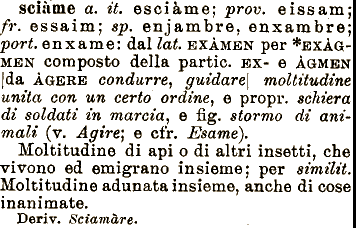 sciàme a. it. esciàme; prov. eissam;
fr. essaim; sp. enjambre, enxambre;
port. enxame: dal lat. EXÀMEN per *EXÀG-
MEN composto della partic. EX- e ÀGMEN
[da ÀGERE condurre, guidare] moltitudine
unita con un certo ordine, e propr. schiera
di soldati in marcia, e fig. stormo di ani-
mali (v. Agire; e cfr. Esame).
Moltitudine di api o di altri insetti, che
vivono ed emigrano insieme; per similit.
Moltitudine adunata insieme, anche di cose
inanimate.
Deriv. Sciamàre.